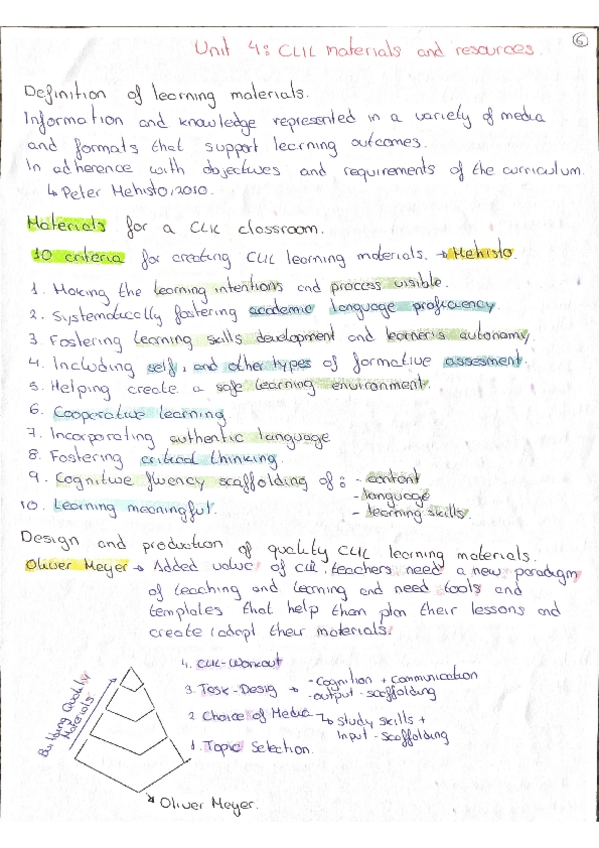 6
Unit 4: CLIL materials and resources.
Definition of learning materials.
Information and knowledge represented in a variety of media
and formats that support learning outcomes.
In adherence with objectives and requirements of the curriculum.
↳ Peter Mehisto, 2010.
Materials for a CLIL classroom.
10 criteria for creating CLIL learning materials. → Mehisto.
1. Making the learning intentions and process visible.
2. Systematically fostering academic language proficiency.
3. Fostering learning skills development and learner's autonomy
4. Including self, and other types of formative assesment.
5. Helping create a safe learning environment.
6. Cooperative learning.
7. Incorporating authentic language
8. Fostering critical thinking.
9. Cognitive fluency scaffolding of: - content
- language
- learning skills.
10. Learning meaningful.
Design and production of quality CLIL learning materials.
Oliver Meyer → Added value of CLIL, teachers need a new paradigm
of teaching and learning and need tools and
templates that help them plan their lessons and
create/adopt their materials.
4. CLIL-Workout
3. Task-Desig → - Cognition + communication
- output - scaffolding
2. Choice of Media → study skills +
Input - scaffolding
1. Topic Selection.
Building Quality
Materials
Oliver Meyer.